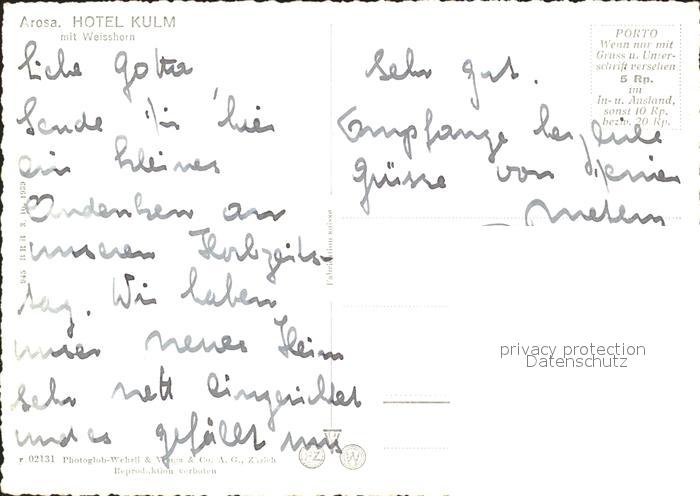 Arosa. HOTEL KULM
mit Weisshorn
Liebe Gotta,
Sende Dir hier
ein kleines
Andenken an
unseren Hochzeits-
tag. Wir haben
unser neues Heim
sehr nett eingerichtet
und es gefällt uns
sehr gut.
Empfange liebe
Grüsse von Deiner
PORTO
Wenn nur mit
Gruss u. Unter-
schrift versehen
5 Rp.
im
In- u. Ausland,
sonst 10 Rp.
bezw. 20 Rp.
Fabrication suisse
02131 Photoglob-Wehrli & Vouga & Co. A. G., Zürich
Reproduktion verboten
privacy protection
Datenschutz